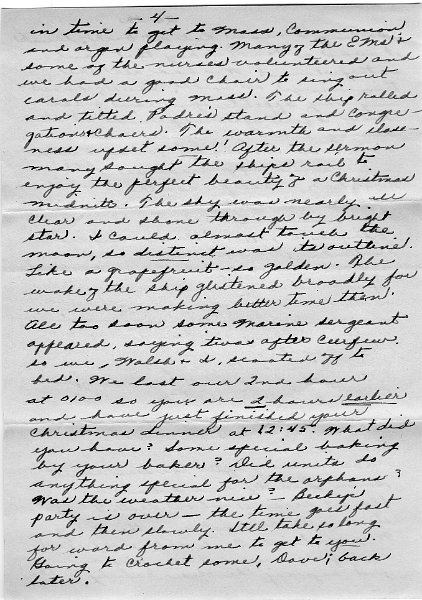 - 4 -
in time to get to Mass, Communion
and organ playing. Many of the EMs &
some of the nurses volunteered and
we had a good choir to sing out
carols during mass. The ship rolled
and tilted, Padres stand and Congre-
gation & Chairs. The warmth and close-
ness upset some! After the sermon
many sought the ships rail to
enjoy the perfect beauty of a Christmas
midnite. The sky was nearly
clear and shone through by bright
star. I could almost touch the
moon, so distinct was its outline.
Like a grapefruit - so golden. The
wake of the ship glistened broadly for
we were making better time then.
All too soon some Marine sergeant
appeared, saying twas after curfew
so we, Walsh & I, scooted off to
bed. We lost our 2nd hour
at 0100 so you are 2 hours earlier
and have just finished your
Christmas dinner at 12:45. What did
you have? Some special baking
by your baker? Did units do
anything special for the orphans?
Was the weather nice? -
party is over - the time goes fast
and then slowly. Still take so long
for word from me to get to you.
Going to crochet some, Dave; back
later.